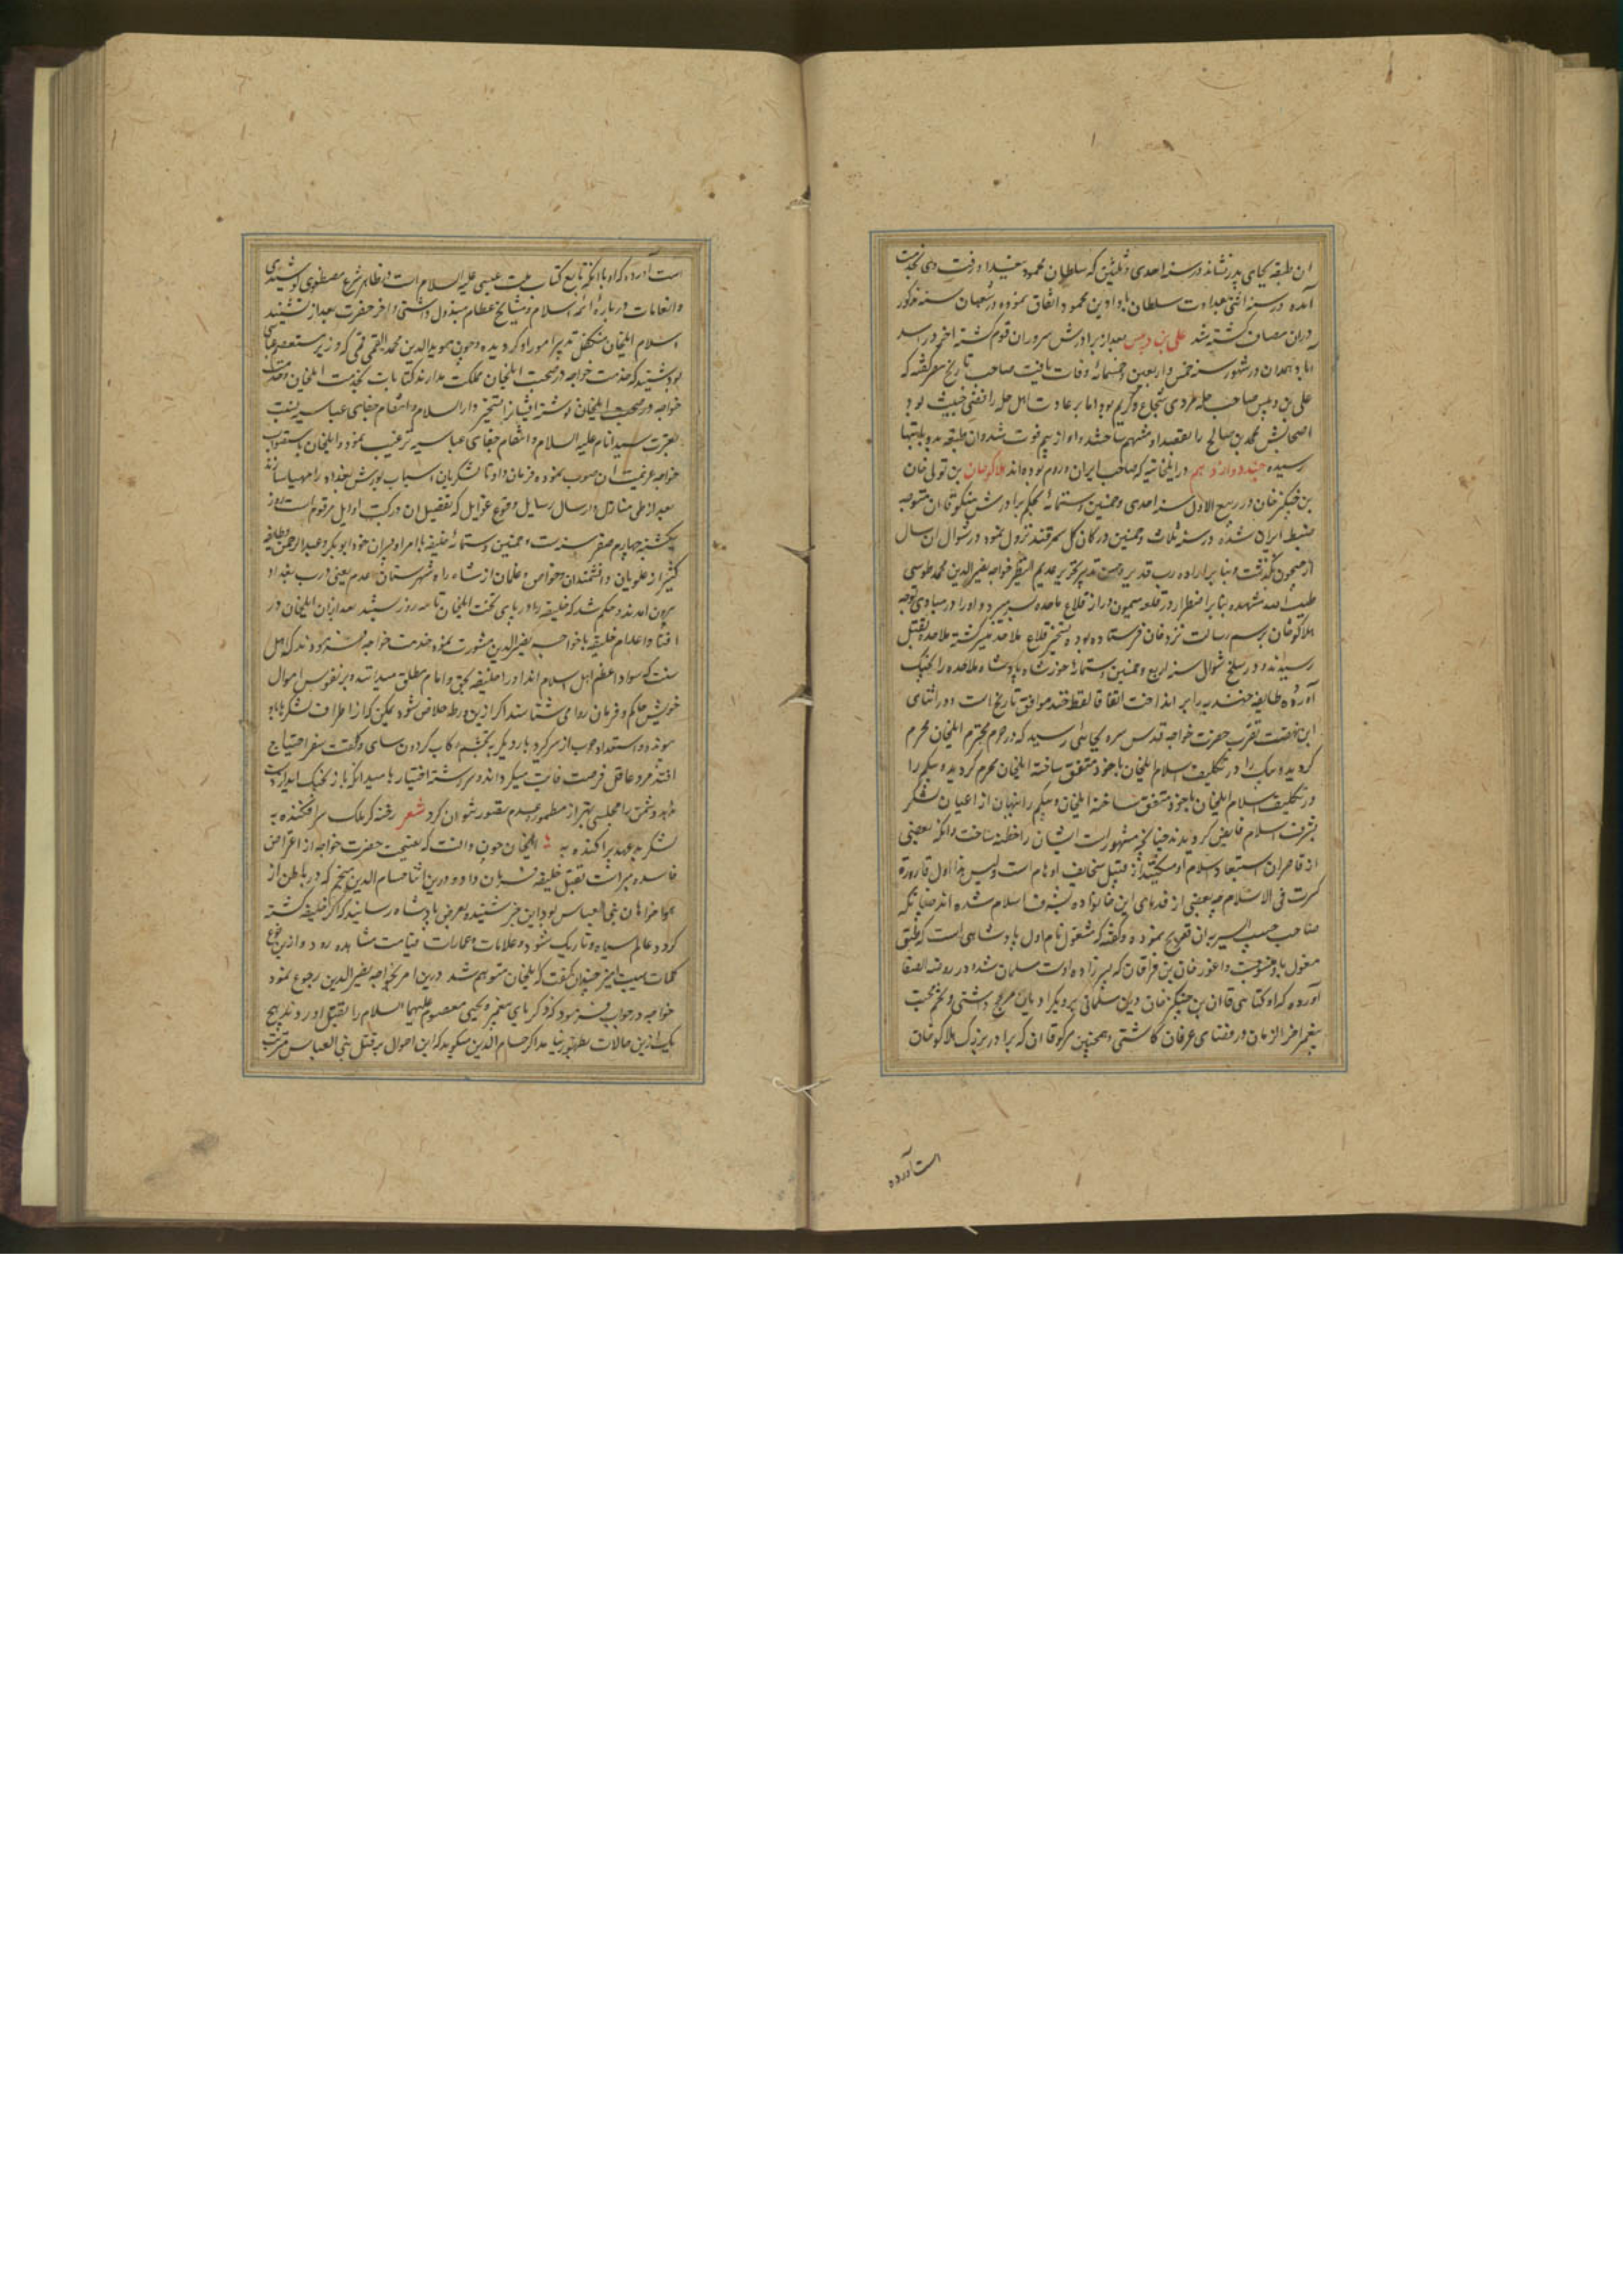 ان طبقه بجای پدر نشاند در سنه احدی و ثلثین که سلطان محمود ببغداد رفت وی بخدمت
آمده در سنه اثنی بعداوت سلطان با داود بن محمود اتفاق نموده و در شعبان سنه مذکور
دران مصاف کشته شد علی بن دبیس بعد از برادرش سروران قوم کشته اخر در اسد
اباد همدان در شهور سنه خمس و اربعین و خمسمائه وفات یافت صاحب تاریخ معرکفته که
علی بن دبیس صاحب حله مردی شجاع و کریم بود اما بر عادت اهل حله رافضی خبیث بود
اصحابش محمد بن صالح را بقصد او متهم ساختند و او از بیم فوت شد و ان طبقه بدو بانتها
رسیده جند دوازدهم در ایلخانیه که صاحب ایران و روم بوده‌اند هلاکوخان بن تولی خان
بن جنکیز خان در ربیع الاول سنه احدی و خمسین و ستمائه بحکم برادرش منکوقاان متوجه
ضبط ایران شده در سنه ثلاث و خمسین در کان کل سمرقند نزول نمود در شوال ان سال
از جیحون بگذشت و بنا بر اراده رب قدیر و حسن تدبیر تحریر عدیم النظیر خواجه نصیر الدین محمد طوسی
طیب الله مشهده بنا بر اضطرار در قلعه میمون دز از قلاع ملاحده بسر میبرد و او را در مبادی توجه
هلاکوخان برسم رسالت نزد خان فرستاده بود تسخیر قلاع ملاحده میسر کشته ملاحده بقتل
رسیدند و در سلخ شوال سنه اربع و خمسین و ستمائه خورشاه پادشاه ملاحده را بجنک
آورده طایفه
این نهضت تقرب حضرت خواجه قدس سره بجائی رسید که در حرم محترم ایلخان محرم
کردیده بیکم را در تکلیف اسلام ایلخان با خود متفق ساخته ایلخان محرم کردیده بیکم را
در تکلیف اسلام ایلخان با خود متفق ساخته ایلخان و بیکم را پنهان از اعیان لشکر
بشرف اسلام فایض کردیدند جنانجه مشهور است ایشان را ختنه ساخت و انکه بعضی
از قاصران استبعاد اسلام او میکنند از قبیل سخایف اوهام است و لیس هذا اول قارورة
کسرت فی الاسلام چه بعضی از قدمای این خانواده بشرف اسلام شده اند جنانکه
صاحب حبیب السیر بران تصریح نموده و کفته که مغول نام اول پادشاهی است که طبق
مغول باو منسوبست و اغور خان بن قراخان که پسرزاده اوست مسلمان شد و در روضة الصفا
آورده که اوکتای قاان بن جنکیز خان دین مسلمانی بر دیکر ادیان مرجح داشتی و تخم محبت
پیغمبر اخر الزمان در فضای عرفان کاشتی و همجنین منکوقاان که برادر بزرک هلاکوخان
است آورده
است آورده که او با انکه تابع کتاب ملت عیسی علیه السلام است در اظهار شرع مصطفوی کوشیدی
و انعامات درباره ائمه اسلام و مشایخ عظام مبذول داشتی و اخر حضرت بعد از تشیید
اسلام ایلخان متکفل تدبیر امور او کردیده و جون موید الدین محمد العلقمی قمی که وزیر مستعصم عباسی
بود شنید که خدمت خواجه در صحبت ایلخان مملکت مدارند کتابات بخدمت ایلخان و خدمت
خواجه در صحبت ایلخان نوشته ایشانرا بتسخیر دار السلام و انتقام جفای عباسیه بنسبت
بعترت سید انام علیه السلام و انتقام جفای عباسیه ترغیب نمود و ایلخان باستصواب
خواجه عزیمت ان صوب نموده فرمان داد تا لشکریان اسباب یورش بغداد را مهیا سازند
بعد از طی منازل و ارسال رسایل و وقوع غوایل که تفصیل ان در کتب اوایل مرقوم است روز
یکشنبه جهارم صفر سنه ست و خمسین و ستمائه خلیفه با امرا و پسران خود ابوبکر و عبد الرحمن و طایفه
کثیر از علویان و دانشمندان و خواص و غلمان از شاه راه شهرستان عدم یعنی درب بغداد
بیرون امدند و حکم شد که خلیفه را در پای تخت ایلخان تا سه روز بستند بعد ازان ایلخان در
افنا و اعدام خلیفه با خواجه نصیر الدین مشورت نموده خدمت خواجه فرمودند که اهل
سنت که سواد اعظم اهل اسلام اند او را خلیفه بحق و امام مطلق میدانند و بر نفوس و اموال
خویش حاکم و فرمان روا می شناسند اکر ازین ورطه خلاص شود یمکن که از اطراف لشکرها باو
پیوندد و استعداد حرب از سر کرد بار دیکر بتجشم رکاب کردون سای و کلفت سفر احتیاج
افتد مرد عاقل فرصت فایت نمیکرداند و سررشته اختیار
و دشمن را محلی بهتر از مطموره عدم تصور نتوان کرد شعر رخنه کر ملک سرافکنده به
لشکر بدعهد پراکنده به ایلخان جون دانست که نصیحت حضرت خواجه از اغراض
فاسده مبراست بقتل خلیفه فرمان داد و درین اثنا حسام الدین منجم که در باطن از
هواخواهان بنی العباس بود این خبر شنیده بعرض پادشاه رسانید که اکر خلیفه کشته
کردد عالم سیاه و تاریک شود و علامات و امارات قیامت مشاهده رود و ازین نوع
کلمات مهیب امیز جندان کفت که ایلخان متوهم شد درین امر بخواجه نصیر الدین رجوع نمود
خواجه در جواب فرمود که زکریای پیغمبر و یحیی معصوم علیهما السلام را بقتل اوردند هیج
یک ازین حالات بظهور نیامد اکر حسام الدین میکوید که این احوال بر قتل بنی العباس مترتب